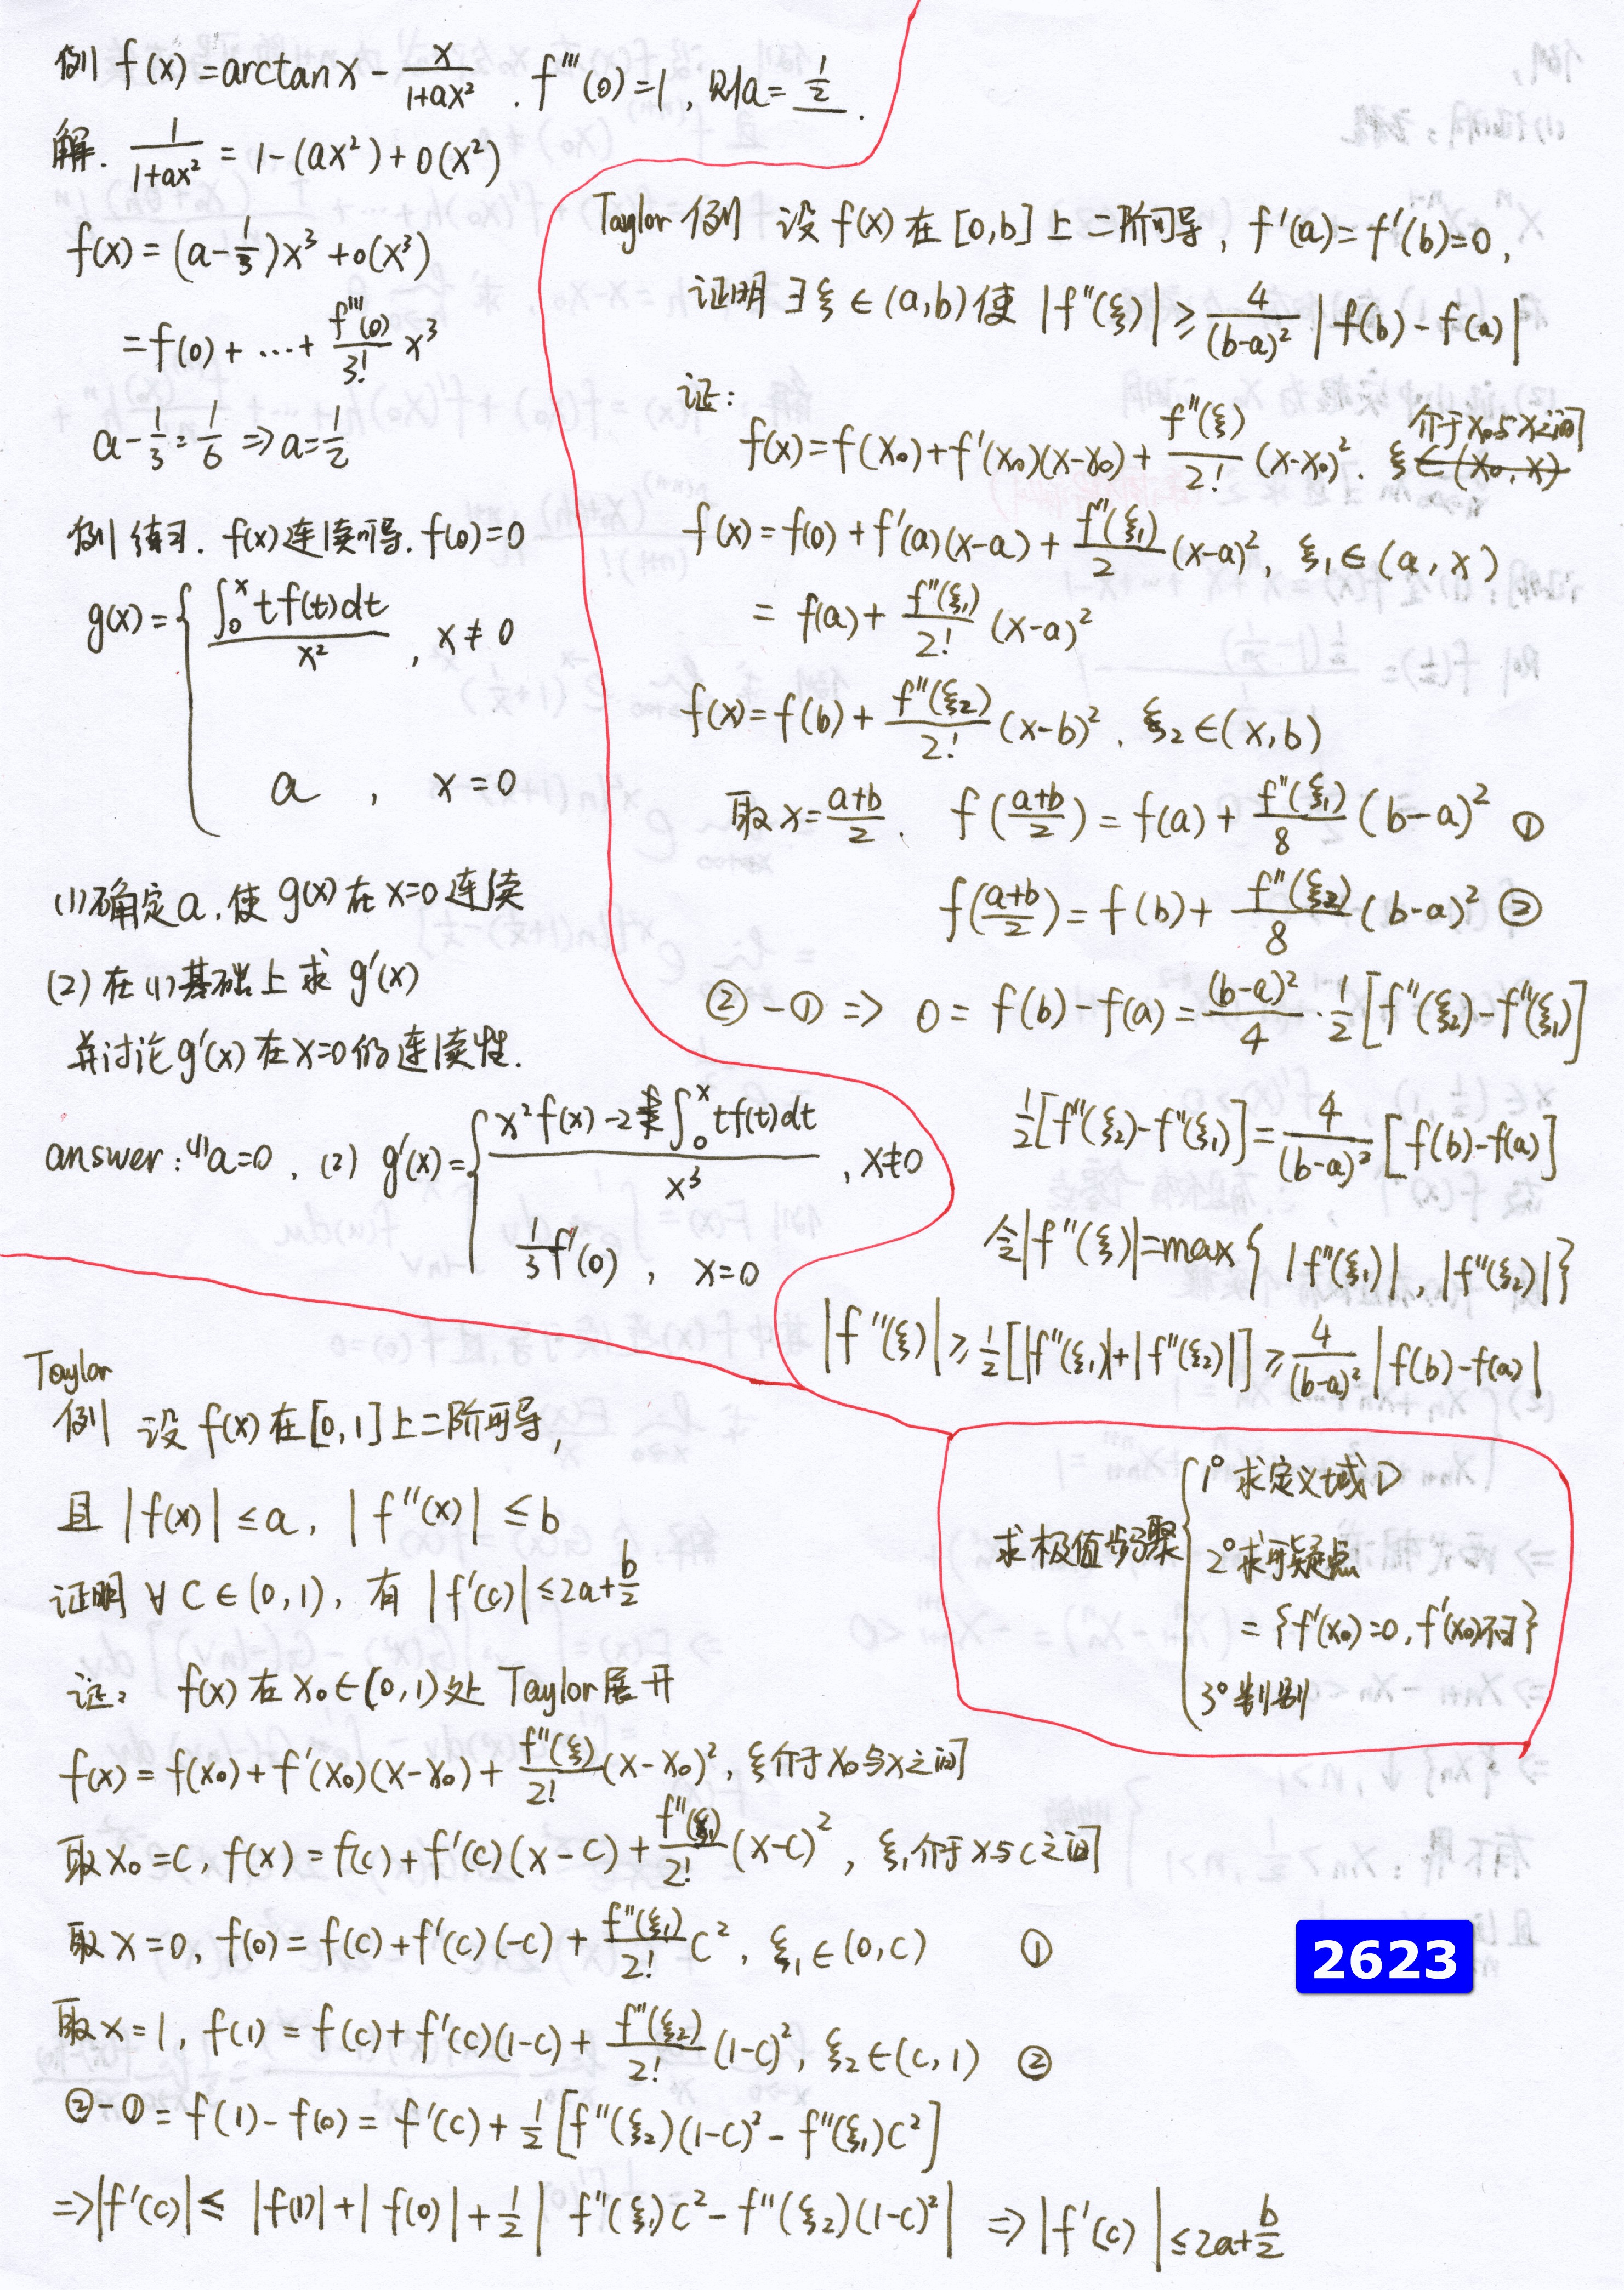 例 f(x)=arctanx - x/(1+ax²). f'''(0)=1, 则a= 1/2 .
解. 1/(1+ax²) = 1-(ax²)+o(x²)
f(x)=(a-1/3)x³+o(x³)
=f(0)+…+ f'''(0)/3! x³
a-1/3=1/6 ⇒ a=1/2
例 练习. f(x)连续可导. f(0)=0
g(x)={ ∫₀ˣ tf(t)dt / x² , x≠0
a , x=0
(1)确定a,使g(x)在x=0连续
(2)在(1)基础上求g'(x)
并讨论g'(x)在x=0的连续性.
answer: (1)a=0, (2) g'(x)={ (x²f(x)-2∫₀ˣtf(t)dt)/x³ , x≠0
1/3 f'(0) , x=0
Taylor 例 设f(x)在[0,b]上二阶可导, f'(a)=f'(b)=0,
证明∃ξ∈(a,b)使 |f''(ξ)|≥ 4/(b-a)² |f(b)-f(a)|
证:
f(x)=f(x₀)+f'(x₀)(x-x₀)+ f''(ξ)/2! (x-x₀)². ξ 介于x₀与x之间 ∈(x₀,x)
f(x)=f(0)+f'(a)(x-a)+ f''(ξ₁)/2 (x-a)², ξ₁∈(a,x)
= f(a)+ f''(ξ₁)/2! (x-a)²
f(x)=f(b)+ f''(ξ₂)/2! (x-b)². ξ₂∈(x,b)
取x=(a+b)/2. f((a+b)/2)=f(a)+ f''(ξ₁)/8 (b-a)² ①
f((a+b)/2)=f(b)+ f''(ξ₂)/8 (b-a)² ②
②-① ⇒ 0=f(b)-f(a)= (b-a)²/4 · 1/2[f''(ξ₂)-f''(ξ₁)]
1/2[f''(ξ₂)-f''(ξ₁)]= 4/(b-a)² [f(b)-f(a)]
令|f''(ξ)|=max{ |f''(ξ₁)|, |f''(ξ₂)|}
|f''(ξ)|≥ 1/2[|f''(ξ₁)|+|f''(ξ₂)|] ≥ 4/(b-a)² |f(b)-f(a)|
求极值步骤{ 1° 求定义域D
2° 求可疑点
= {f'(x₀)=0, f'(x₀)不∃}
3° 判别
Taylor
例 设f(x)在[0,1]上二阶可导,
且 |f(x)|≤a, |f''(x)|≤b
证明 ∀C∈(0,1), 有|f'(c)|≤2a+b/2
证: f(x)在x₀∈(0,1)处Taylor展开
f(x)=f(x₀)+f'(x₀)(x-x₀)+ f''(ξ)/2! (x-x₀)², ξ介于x₀与x之间
取x₀=C, f(x)=f(c)+f'(c)(x-c)+ f''(ξ₁)/2! (x-c)², ξ₁介于x与c之间
取x=0, f(0)=f(c)+f'(c)(-c)+ f''(ξ₁)/2! C², ξ₁∈(0,c) ①
取x=1, f(1)=f(c)+f'(c)(1-c)+ f''(ξ₂)/2! (1-c)², ξ₂∈(c,1) ②
②-①=f(1)-f(0)=f'(c)+ 1/2[f''(ξ₂)(1-c)²-f''(ξ₁)C²]
⇒|f'(c)|≤ |f(1)|+|f(0)|+ 1/2|f''(ξ₁)C²-f''(ξ₂)(1-c)²| ⇒|f'(c)|≤2a+b/2
2623